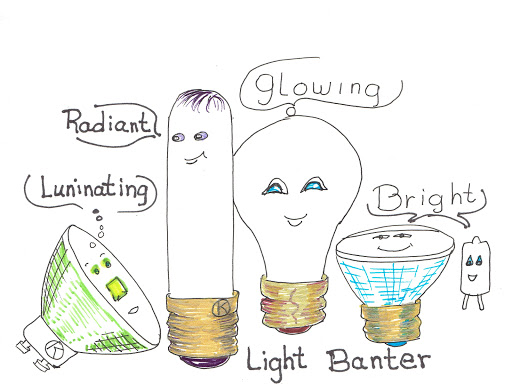 Glowing
Radiant
Luninating
Bright
K
K
Light Banter